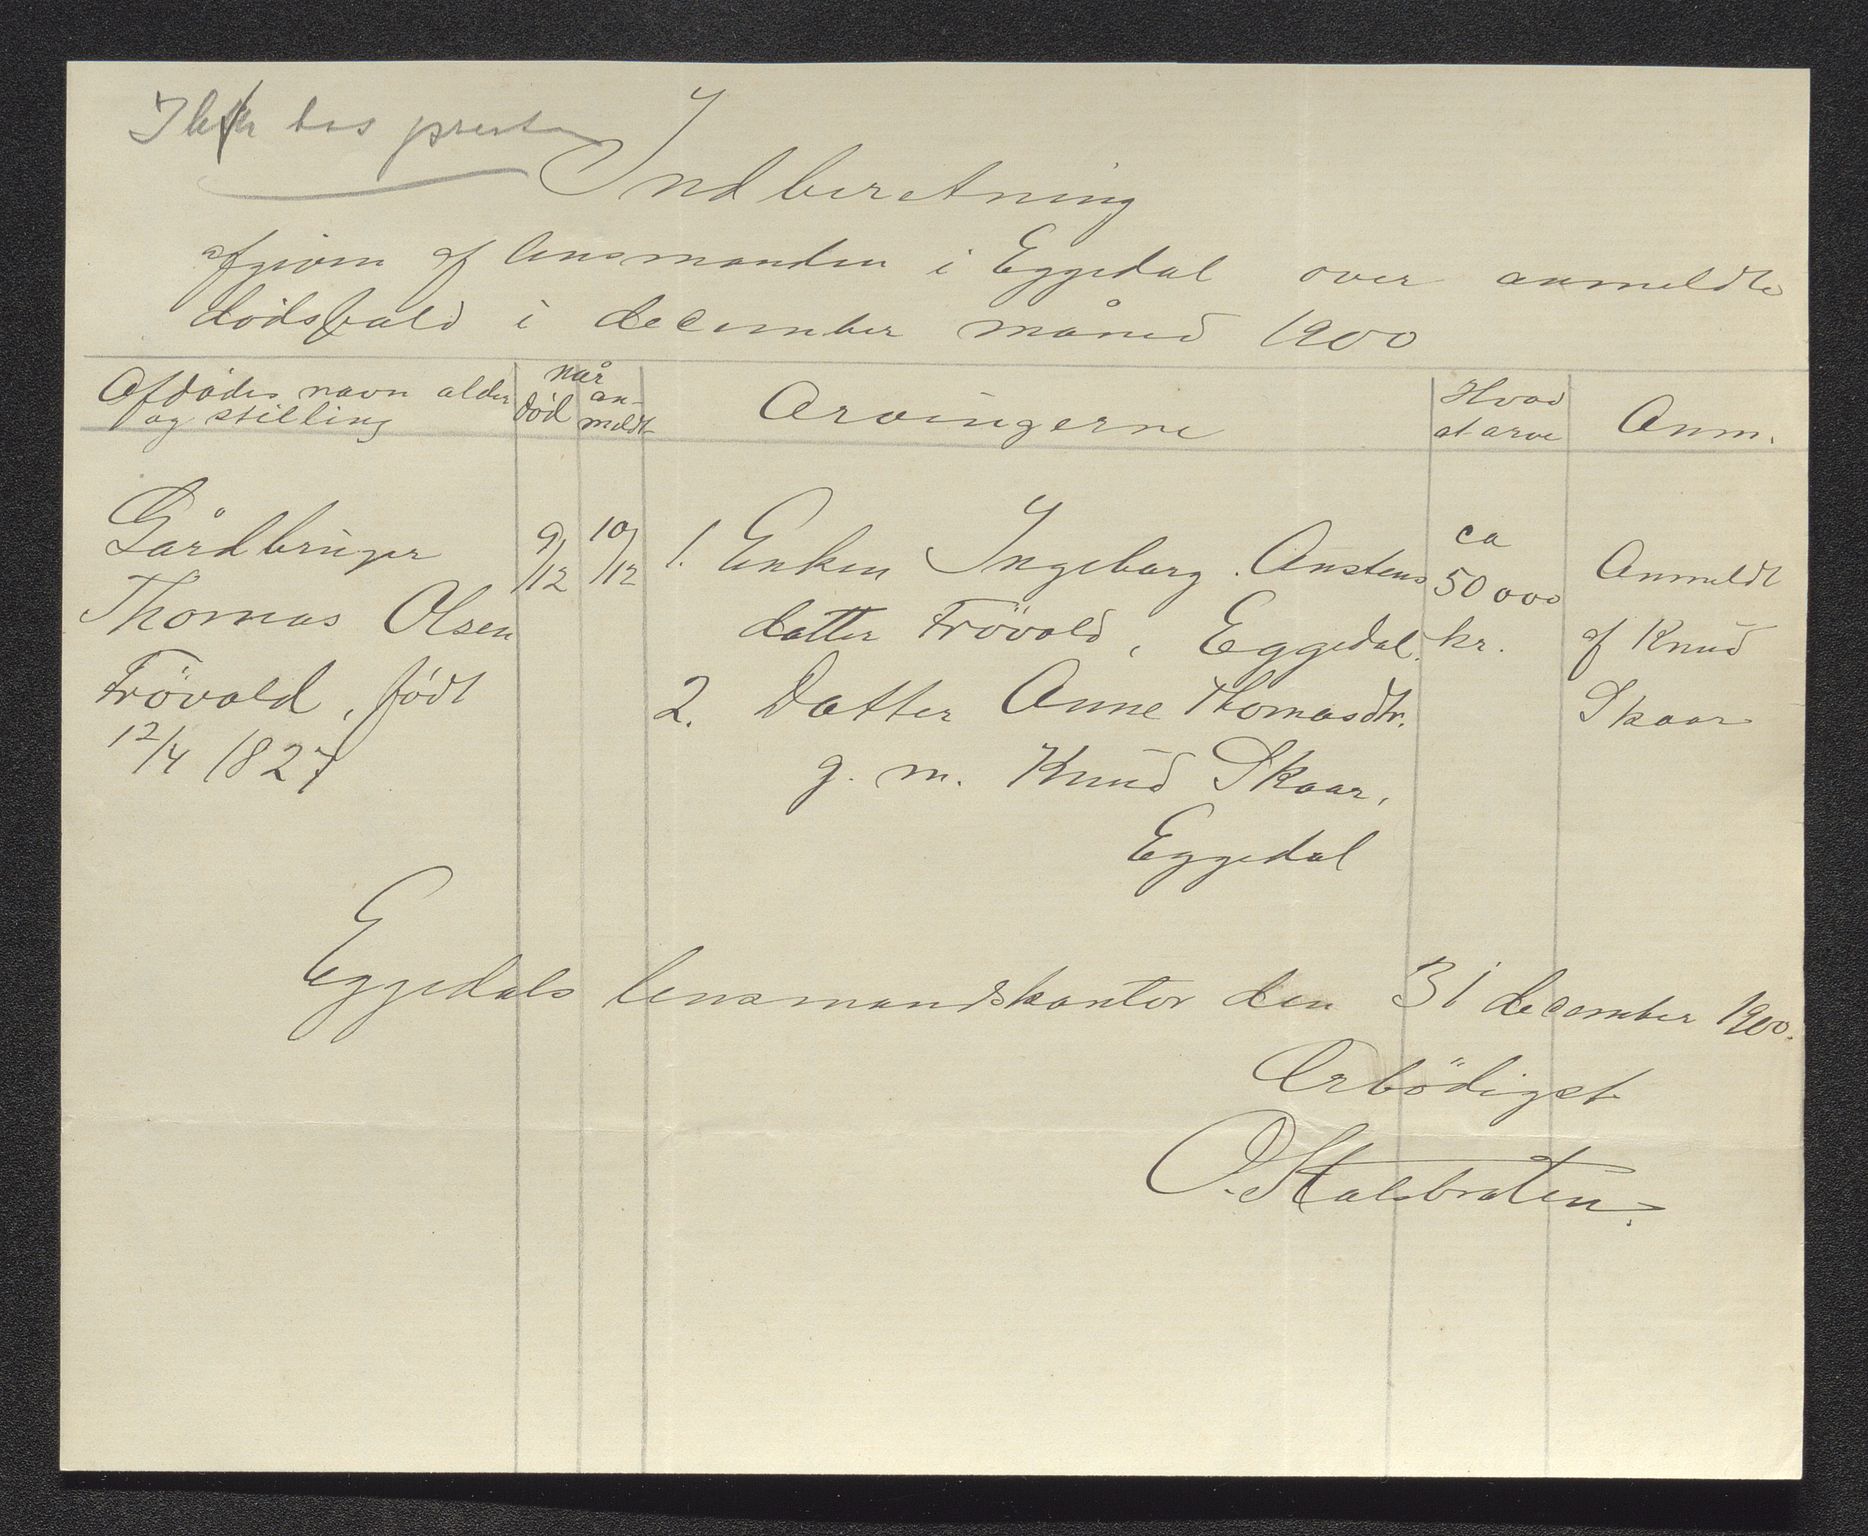 Ikke hos presten
Indberetning
afgiven af lensmanden i Eggedal over anmeldte
dödsfald i december måned 1900
Afdödes navn alder
og stilling
når
död
an-
meldt
Arvingerne
Hvad
at arve
Anm.
Gårdbruger
Thomas Olsen
Frövold, födt
12/4 1827
9/12
10/12
1. Enken Ingeborg Anstens
datter Frövold, Eggedal.
2. Datter Anne Thomasdtr.
g. m. Knud Skaar,
Eggedal
ca
50000
kr.
Anmeldt
af Knud
Skaar
Eggedals lensmandskontor den 31 december 1900.
Ærbödigst
O. Kalsbraten.